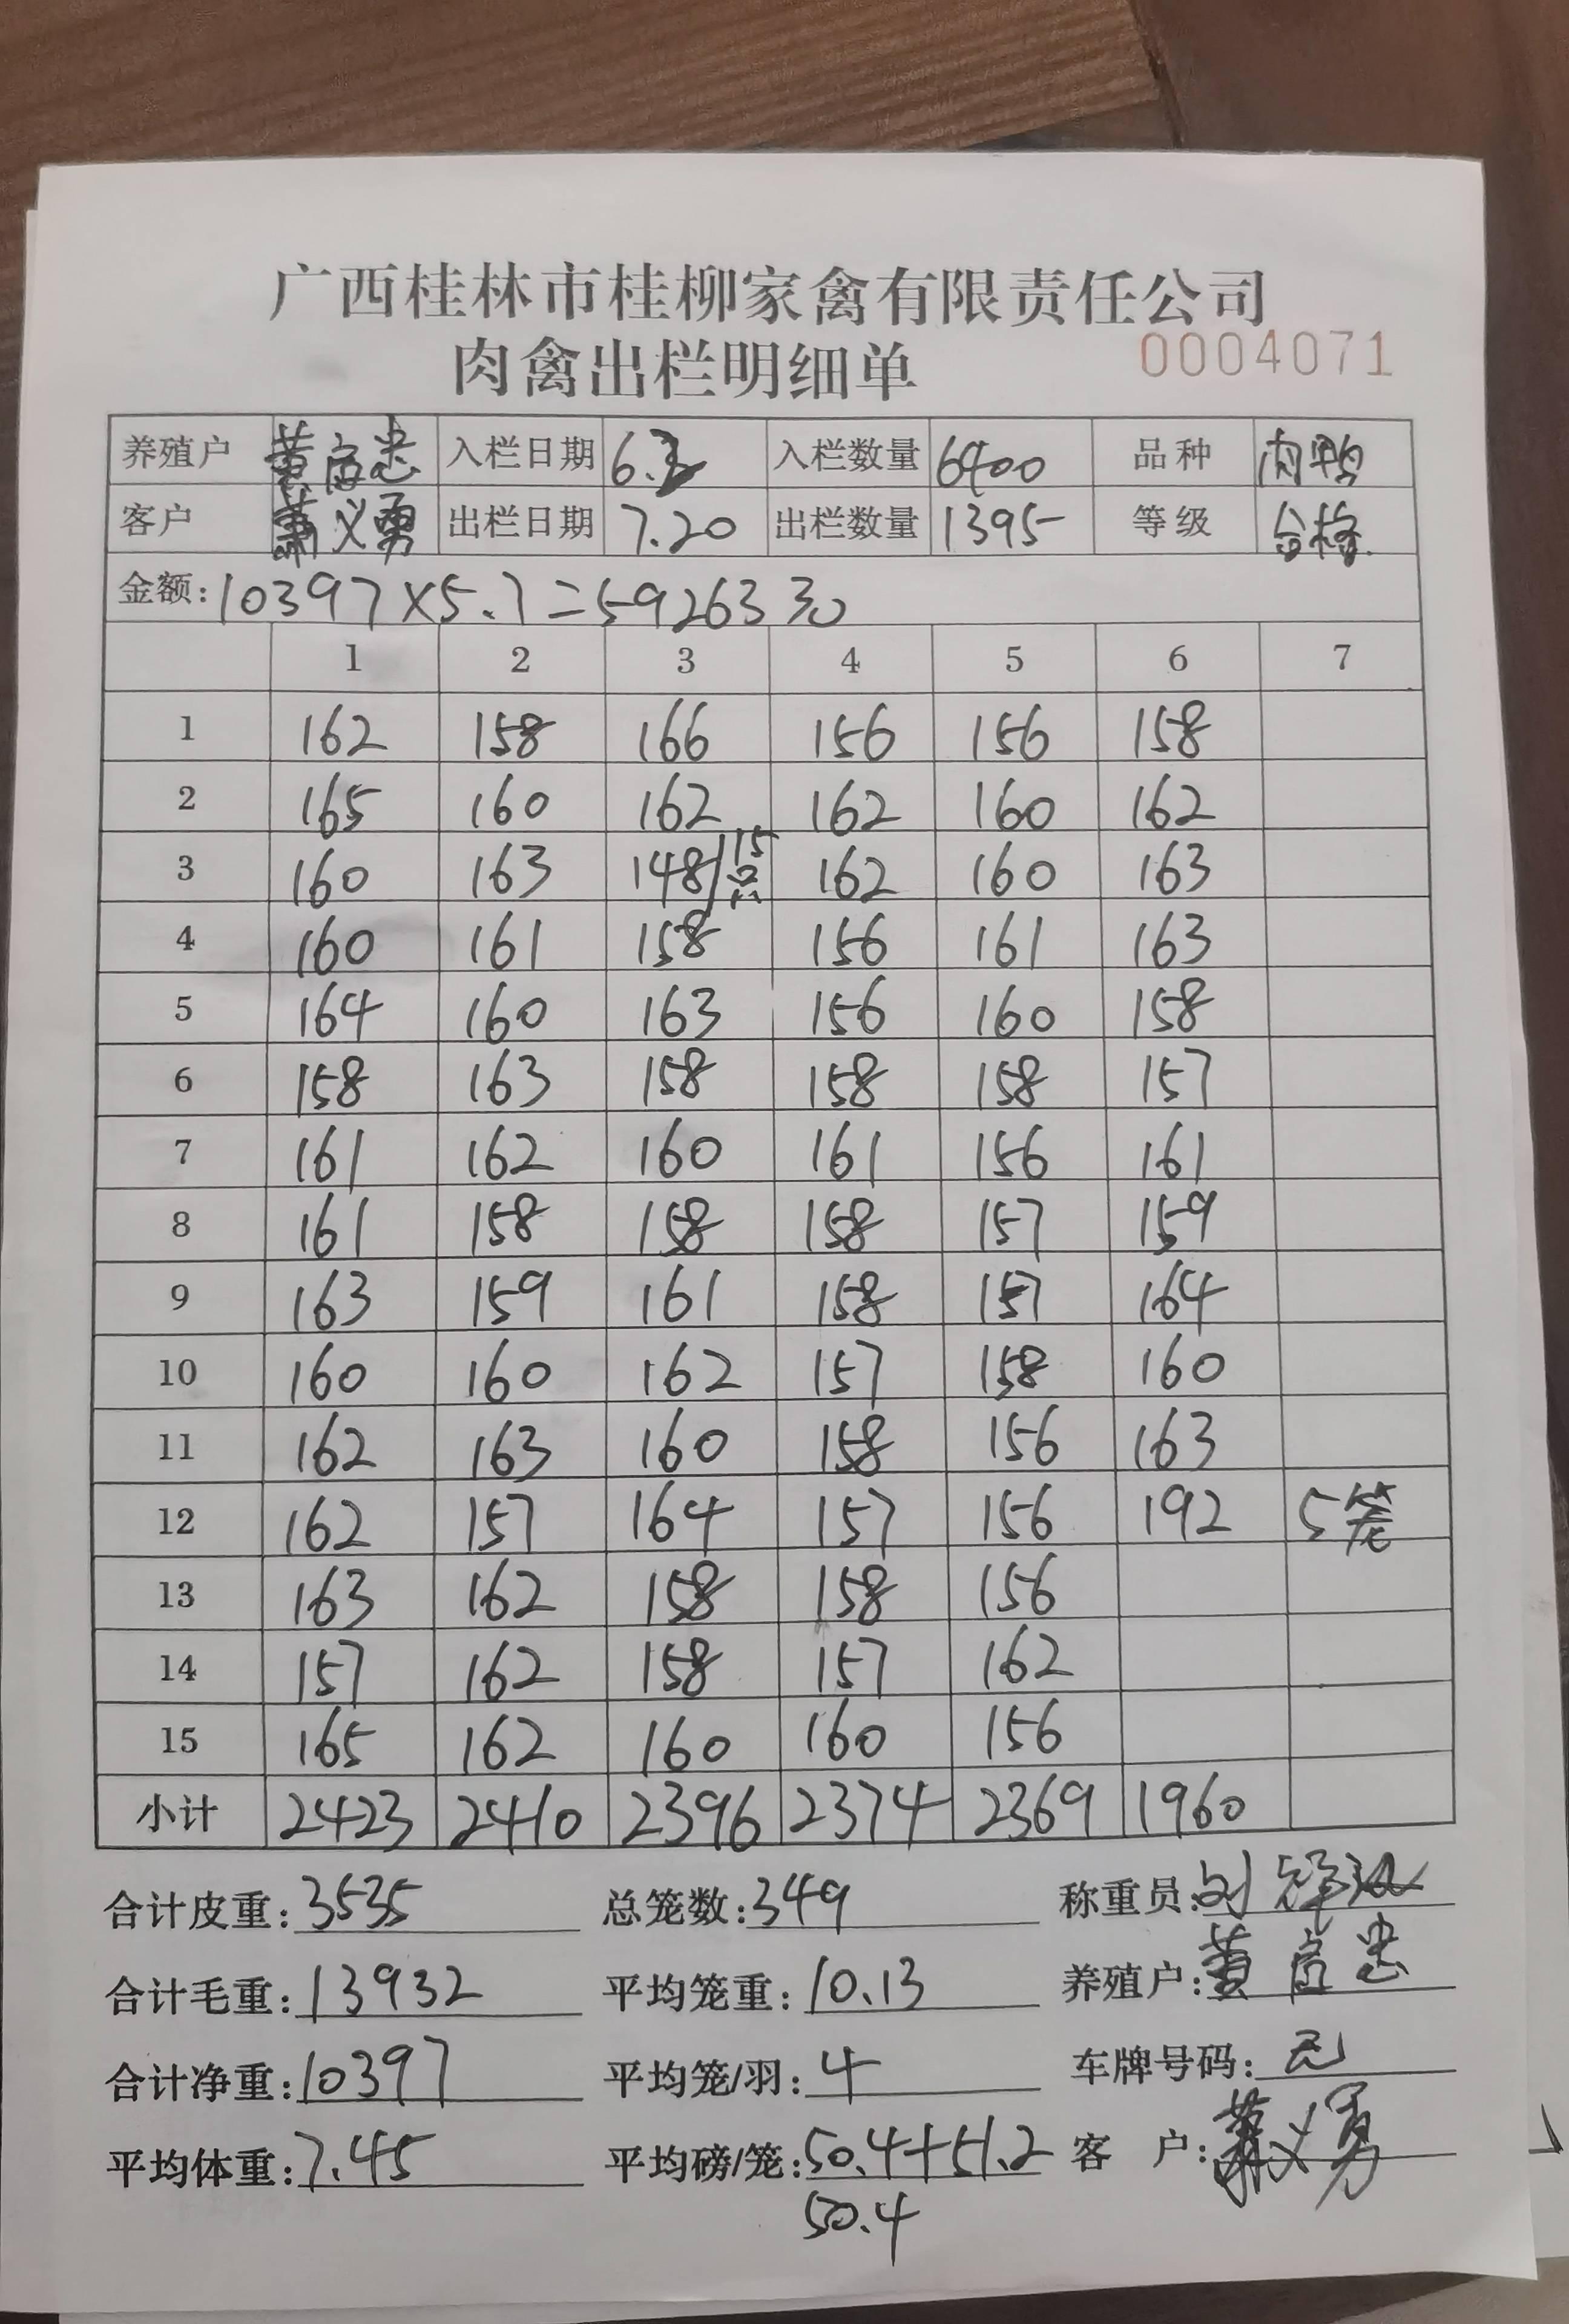 广西桂林市桂柳家禽有限责任公司
肉禽出栏明细单 0004071
养殖户 黄 忠 入栏日期 6. 入栏数量 6400 品种 肉鸭
客户 萧义勇 出栏日期 7.20 出栏数量 1395 等级 合格
金额:10397×5.7=59263元
1 2 3 4 5 6 7
1 162 158 166 156 156 158
2 165 160 162 162 160 162
3 160 163 148/15 162 160 163
4 160 161 158 156 161 163
5 164 160 163 156 160 158
6 158 163 158 158 158 157
7 161 162 160 161 156 161
8 161 158 158 158 157 159
9 163 159 161 158 157 164
10 160 160 162 157 158 160
11 162 163 160 158 156 163
12 162 157 164 157 156 192 5笼
13 163 162 158 158 156
14 157 162 158 157 162
15 165 162 160 160 156
小计 2423 2410 2396 2374 2369 1960
合计皮重:3535 总笼数:349 称重员:刘
合计毛重:13932 平均笼重:10.13 养殖户:黄 忠
合计净重:10397 平均笼/羽:4 车牌号码:无
平均体重:7.45 平均磅/笼:50.4+51.2 客 户:萧义勇
50.4